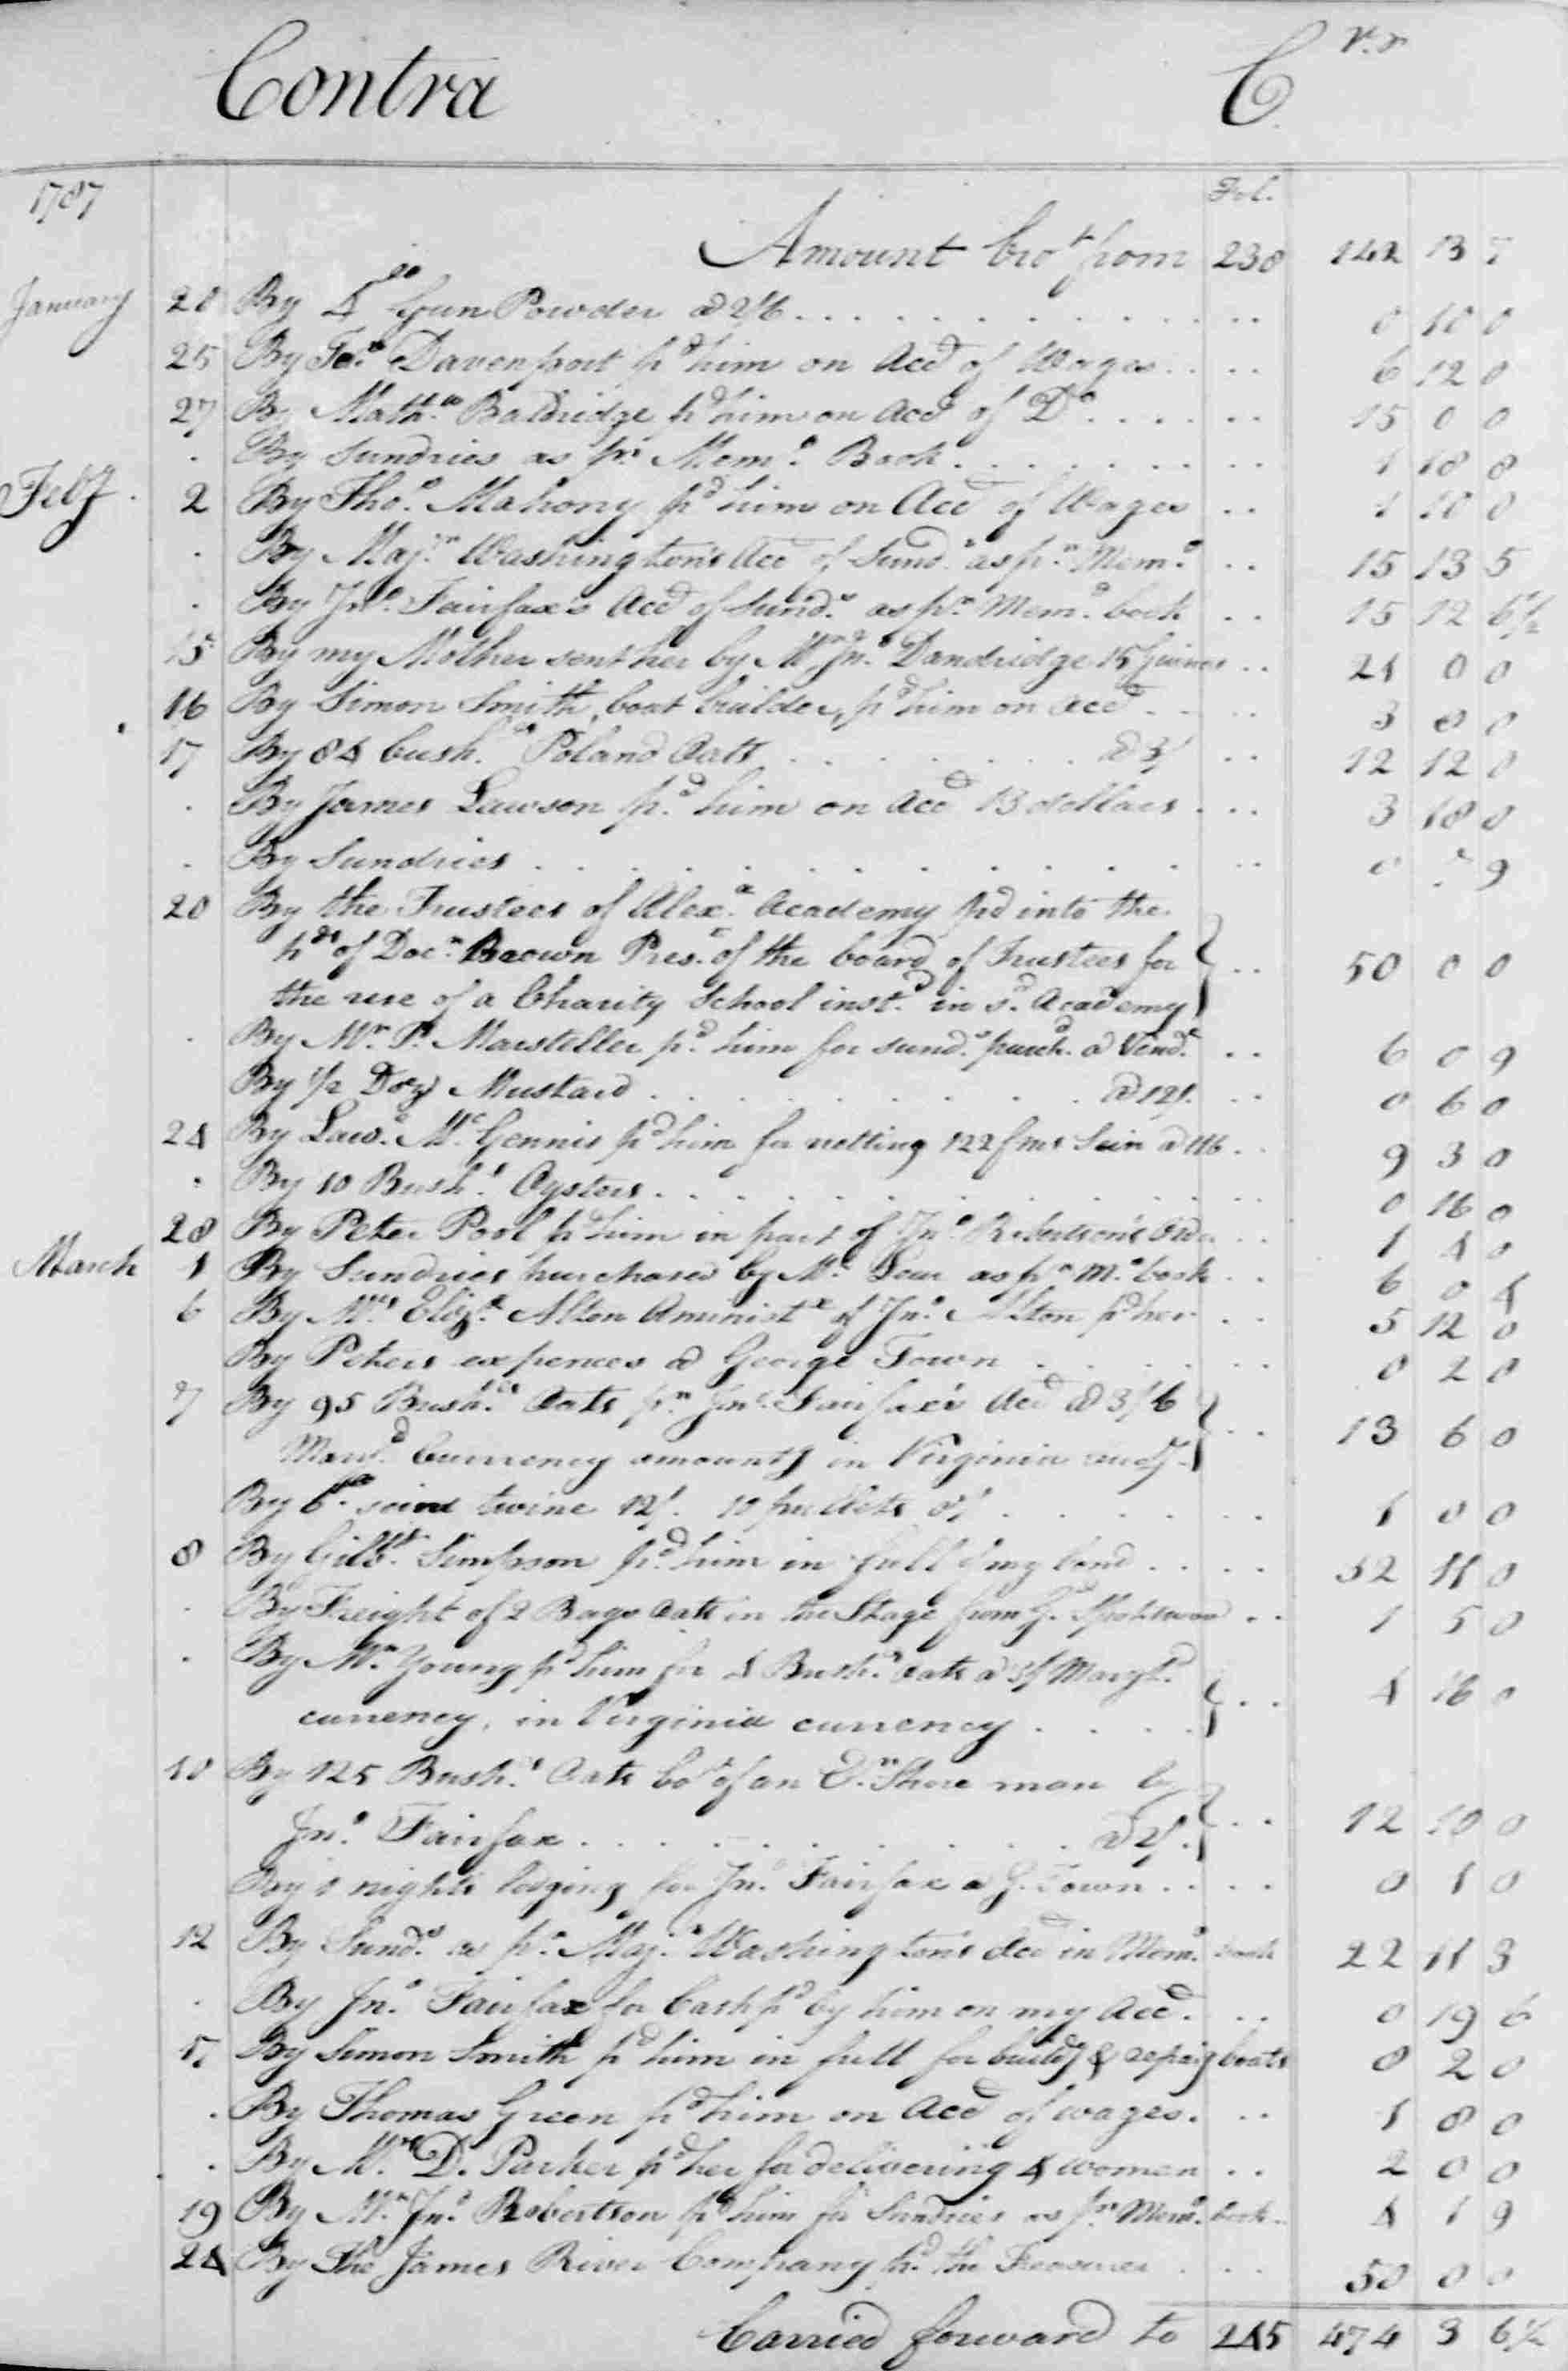 Contra Cr.
1787 Fol.
Amount bro.t from 238 142 13 7
January 20 By 4 lb Gun Powder @ 2/6 0 10 0
25 By Jos. Davenport p.d him on Acc.t of Wages 6 12 0
27 By Math.w Baldridge p.d him on Acc.t of D.o 15 0 0
By Sundries as p.r Mem.o Book 1 18 8
Feby 2 By Tho.s Mahony p.d him on Acc.t of Wages 1 10 0
By Maj.r Washington's Acc.t of Sund.s as p.r Mem.o 15 13 5
By Jn.o Fairfax's Acc.t of Sund.s as p.r Mem.o book 15 12 6 1/2
15 By my Mother sent her by M.r Jn.o Dandridge 15 Guineas 21 0 0
16 By Simon Smith, boat builder, p.d him on Acc.t 3 0 0
17 By 84 bush.ls Poland Oats @ 3/ 12 12 0
By James Lawson p.d him on Acc.t 13 dollars 3 18 0
By Sundries 0 9
20 By the Trustees of Alex.a Academy p.d into the
h.ds of Doc.r Brown Pres.t of the board of Trustees for
the use of a Charity School inst.d in s.d Academy 50 0 0
By M.r P. Marsteller p.d him for sund.s purch.d @ Vend.e 6 0 9
By 1/2 Doz Mustard @ 12/. 0 6 0
24 By Law.e M.c Gennis p.d him for netting 122 fms Sein @ 1/6 9 3 0
By 10 Bush.s Oysters 0 16 0
28 By Peter Pool p.d him in part of Jn.o Robertson's Ord.r 1 4 0
March 1 By Sundries purchased by M.r Lear as p.r M.o book 6 0 4
6 By M.rs Eliz.a Alton Aminist.x of Jn.o Alton p.d her 5 12 0
By Peters expences @ George Town 0 2 0
7 By 95 Bush.ls Oats p.r Jn.o Fairfax's Acc.t @ 3/6
Mary.d Currency amount.g in Virginia curr.y 13 6 0
By 6 lb seine twine 12/. 10 pullets 8/ 1 0 0
8 By Gilb.t Simpson p.d him in full of my bond 52 11 0
By Freight of 2 Bags Oats in the Stage from G. Spotswood 1 5 0
By M.r Young p.d him for 4 Bush.s Oats @ Maryl.d
currency, in Virginia currency 4 16 0
10 By 125 Bush.s Oats bo.t of an E.rn Shore man by
Jn.o Fairfax @ 2/. 12 10 0
By 1 nights lodging for Jn.o Fairfax @ G. Town 0 1 0
12 By Sund.s as p.r Maj.r Washington's Acc.t in Mem.o book 22 11 3
By Jn.o Fairfax for Cash p.d by him on my Acc.t 0 19 6
17 By Simon Smith p.d him in full for build.g & repair.g boats 8 2 0
By Thomas Green p.d him on Acc.t of wages 1 8 0
By M.rs D. Parker p.d her for delivering 4 women 2 0 0
19 By M.r Jn.o Robertson p.d him for Sundries as p.r Mem.o book 4 1 9
24 By The James River Company p.d the Treasurer 50 0 0
Carried forward to 245 474 3 6 1/2